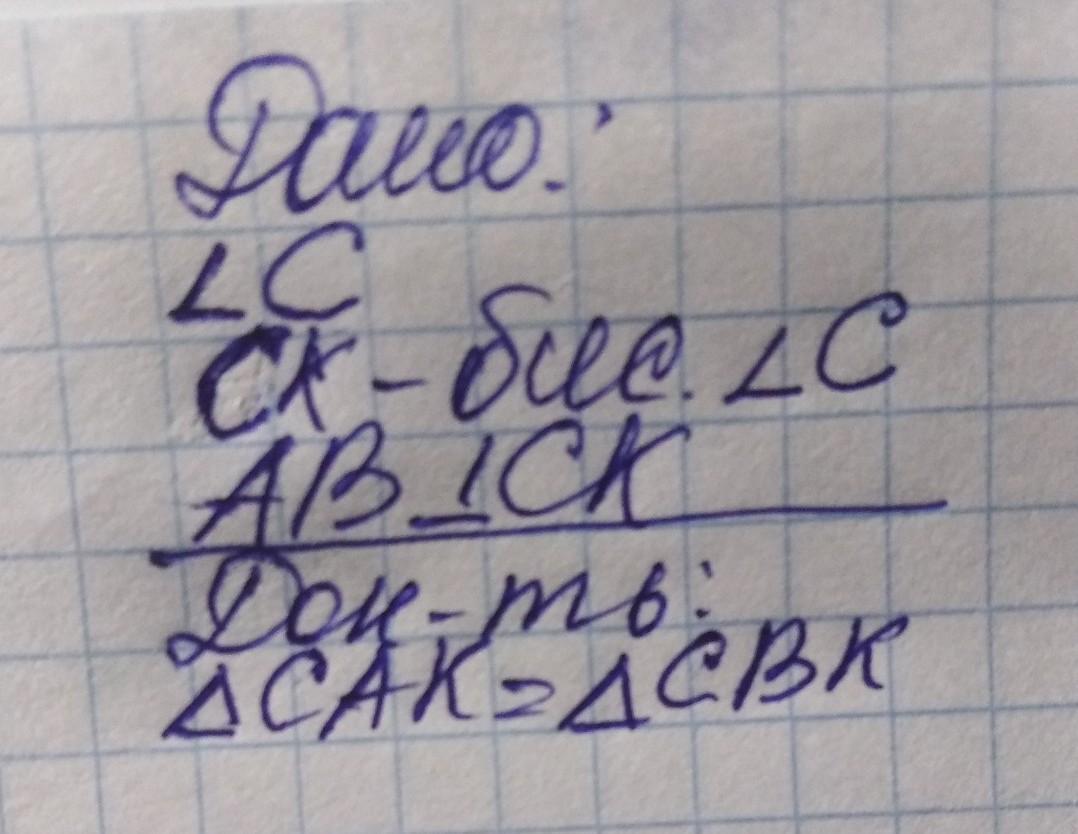 Дано:
∠C
CK - бис. ∠C
AB ⊥ CK
Док-ть:
△CAK = △CBK